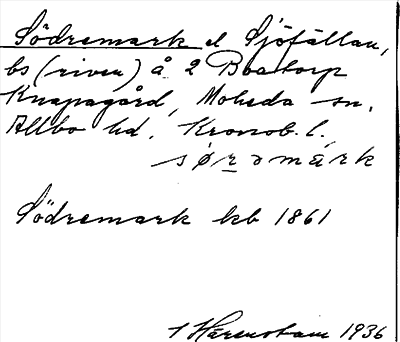 Södremark el Sjöfällan,
bs (riven) å 2 Boatorp
Knapagård, Moheda sn.
Allbo hd. Kronob. l.
sørəmark
Södremark kb 1861
1936